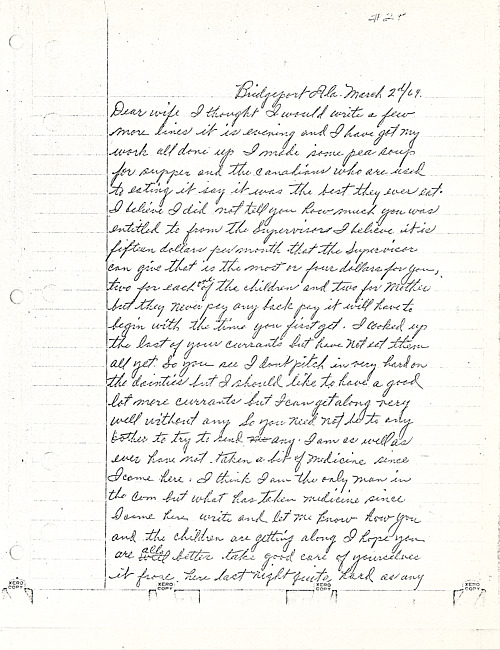 #25
Bridgeport Ala. March 2d/64.
Dear wife I thought I would write a few
more lines it is evening and I have got my
work all done up I made some pea soup
for supper and the canadians who are used
to eating it say it was the best they ever eat.
I believe I did not tell you how much you was
entitled to from the Supervisors I believe it is
fifteen dollars per month that the Supervisor
can give that is the most or four dollars for you,
two for each of the children and two for Mother
but they never pay any back pay it will have to
begin with the time you first get. I cooked up
the last of your currants but have not eat them
all yet. So you see I dont pitch in very hard on
the dainties but I should like to have a good
lot more currants but I can get along very
well without any so you need not be to any
bother to try to send any. I am as well as
ever have not taken a bit of medicine since
I came here. I think I am the only man in
the com but what has taken medicine since
I came here write and let me know how you
and the children are getting along I hope you
are all better take good care of yourselves
it froze here last night quite hard as any
XERO COPY
XERO COPY
XERO COPY
XERO COPY